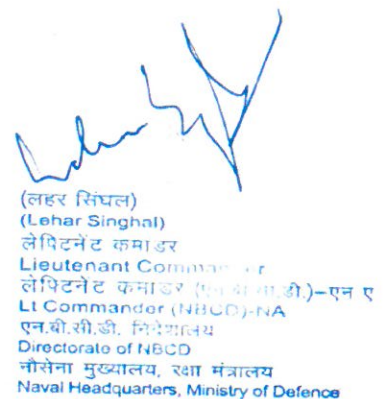 (लहर सिंघल)
(Lehar Singhal)
लेफ्टिनेंट कमांडर
Lieutenant Commander
लेफ्टिनेंट कमांडर (एन.बी.सी.डी.)–एन ए
Lt Commander (NBCD)-NA
एन.बी.सी.डी. निदेशालय
Directorate of NBCD
नौसेना मुख्यालय, रक्षा मंत्रालय
Naval Headquarters, Ministry of Defence